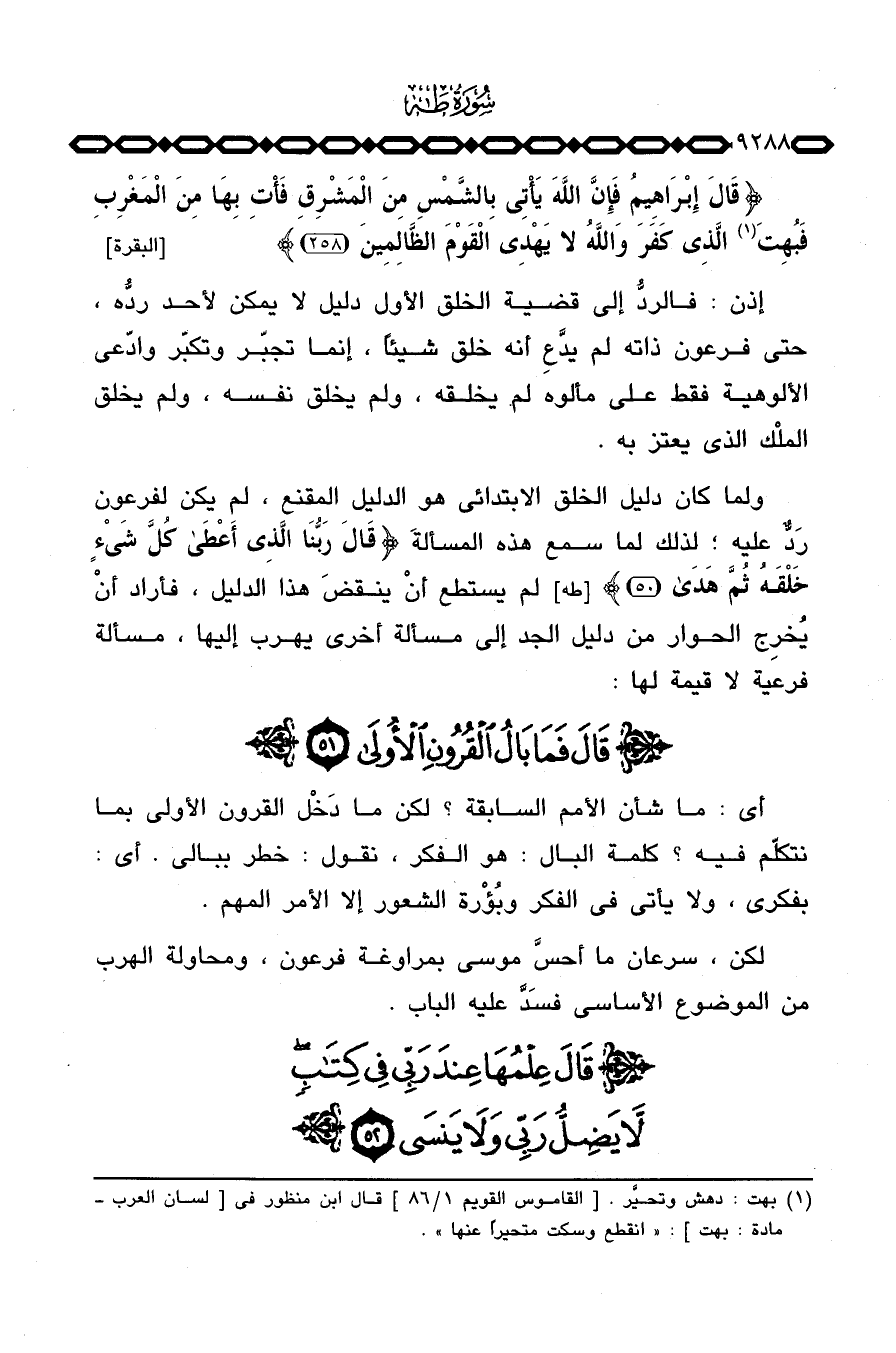 سُورَةُ طه
٩٢٨٨
﴿ قَالَ إِبْرَاهِيمُ فَإِنَّ اللَّهَ يَأْتِى بِالشَّمْسِ مِنَ الْمَشْرِقِ فَأْتِ بِهَا مِنَ الْمَغْرِبِ
فَبُهِتَ (١) الَّذِى كَفَرَ وَاللَّهُ لا يَهْدِى الْقَوْمَ الظَّالِمِينَ (٢٥٨) ﴾ [البقرة]
إذن : فالردُّ إلى قضية الخلق الأول دليل لا يمكن لأحد ردُّه ،
حتى فرعون ذاته لم يدَّعِ أنه خلق شيئاً ، إنما تجبّر وتكبّر وادّعى
الألوهية فقط على مألوه لم يخلقه ، ولم يخلق نفسه ، ولم يخلق
الملْك الذى يعتز به .
ولما كان دليل الخلق الابتدائى هو الدليل المقنع ، لم يكن لفرعون
رَدٌّ عليه ؛ لذلك لما سمع هذه المسألة ﴿ قَالَ رَبُّنَا الَّذِى أَعْطَىٰ كُلَّ شَىْءٍ
خَلْقَهُ ثُمَّ هَدَىٰ (٥٠) ﴾ [طه] لم يستطع أنْ ينقضَ هذا الدليل ، فأراد أنْ
يُخرِج الحوار من دليل الجد إلى مسألة أخرى يهرب إليها ، مسألة
فرعية لا قيمة لها :
﴿ قَالَ فَمَا بَالُ ٱلْقُرُونِ ٱلْأُولَىٰ ٥١ ﴾
أى : ما شأن الأمم السابقة ؟ لكن ما دَخْل القرون الأولى بما
نتكلّم فيه ؟ كلمة البال : هو الفكر ، نقول : خطر ببالى . أى :
بفكرى ، ولا يأتى فى الفكر وبُؤْرة الشعور إلا الأمر المهم .
لكن ، سرعان ما أحسَّ موسى بمراوغة فرعون ، ومحاولة الهرب
من الموضوع الأساسى فسَدَّ عليه الباب .
﴿ قَالَ عِلْمُهَا عِندَ رَبِّى فِى كِتَٰبٍ ۖ
لَّا يَضِلُّ رَبِّى وَلَا يَنسَى ٥٢ ﴾
(١) بهت : دهش وتحيَّر . [ القاموس القويم ٨٦/١ ] قال ابن منظور فى [ لسان العرب -
مادة : بهت ] : « انقطع وسكت متحيراً عنها » .